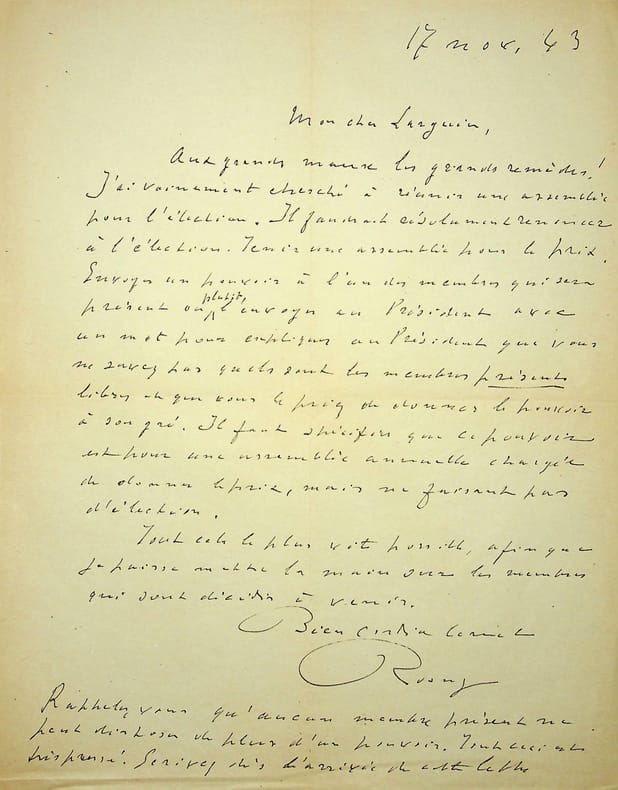 17 nov. 43
Mon cher Larguier,
Aux grands maux les grands remèdes!
J'ai vainement cherché à réunir une assemblée
pour l'élection. Il faudrait résolument renoncer
à l'élection. Tenir une assemblée pour le prix.
Envoyez un pouvoir à l'un des membres qui sera
présent ou plutôt, l'envoyer au Président avec
un mot pour expliquer au Président que vous
ne savez pas quels sont les membres présents
libres et que vous le priez de donner le pouvoir
à son gré. Il faut spécifier que ce pouvoir
est pour une assemblée annuelle chargée
de donner le prix, mais ne faisant pas
d'élection.
Tout cela le plus vite possible, afin que
je puisse mettre la main sur les membres
qui sont décidés à venir.
Bien cordialement
Rosny
Rappelez-vous qu'aucun membre présent ne
peut disposer de plus d'un pouvoir. Tout ceci est
très pressé. Ecrivez dès l'arrivée de cette lettre